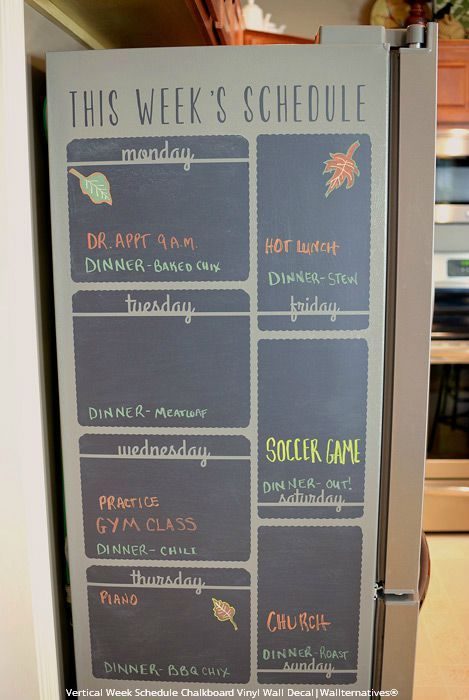 THIS WEEK'S SCHEDULE
monday
DR. APPT 9 A.M.
DINNER-BAKED CHIX
tuesday
DINNER-MEATLOAF
wednesday
PRACTICE
GYM CLASS
DINNER-CHILI
thursday
PIANO
DINNER-BBQ CHIX
HOT LUNCH
DINNER-STEW
friday
SOCCER GAME
DINNER-OUT!
saturday
CHURCH
DINNER-ROAST
sunday
Vertical Week Schedule Chalkboard Vinyl Wall Decal|Wallternatives®